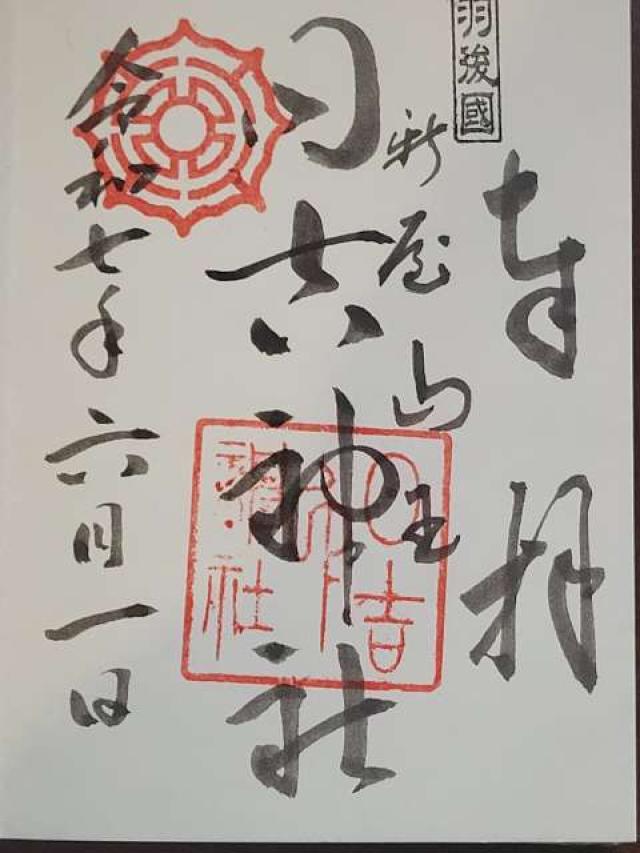 羽後國
奉拝
新屋山王
日吉神社
日吉神社
令和七年六月一日